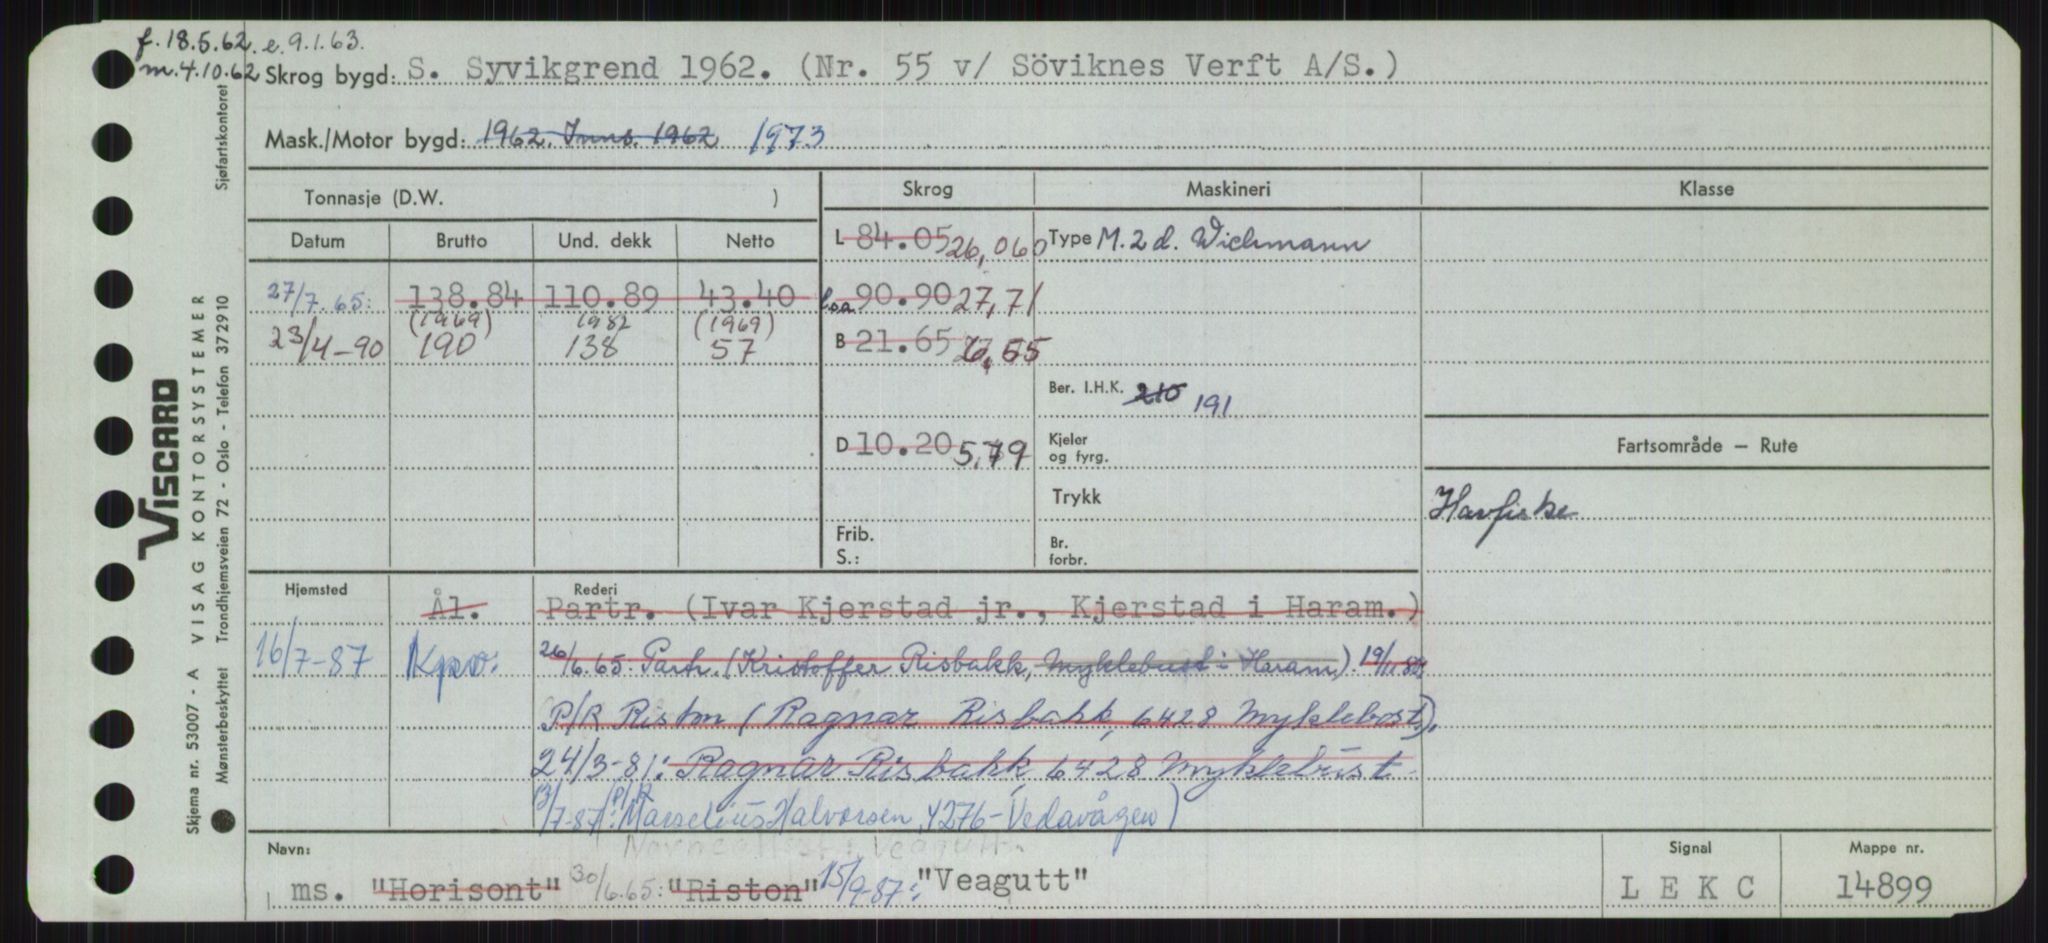 f. 18.5.62. e. 9.1.63.
m. 4.10.62 Skrog bygd: S. Syvikgrend 1962. (Nr. 55 v/ Söviknes Verft A/S.)
Mask./Motor bygd: 1962. Inns. 1962 1973
Tonnasje (D.W. )
Skrog Maskineri Klasse
Datum Brutto Und. dekk Netto
L 84.05 26,060 Type M. 2 d. Wichmann
27/7.65: 138.84 110.89 43.40
loa 90.90 27,71
(1969) 1982 (1969)
23/4-90 190 138 57
B 21.65 6,55
Ber. I.H.K. 210 191
D 10.20 5,79 Kjeler og fyrg.
Fartsområde — Rute
Trykk
Havfiske
Frib.
S.:
Br. forbr.
Hjemsted Ål. Rederi Partr. (Ivar Kjerstad jr., Kjerstad i Haram.)
16/7-87 Kprv: 26/6.65: Partr. (Kristoffer Risbakk, Myklebust i Haram). 19/11.80:
P/R Riston (Ragnar Risbakk, 6428 Myklebost).
24/3-81: Ragnar Risbakk, 6428 Myklebust
13/7-87: P/R (Marselius Halvorsen, 4276-Vedavågen)
Navn: ms. "Horisont" 30/6.65: "Riston" 15/9-87: "Veagutt"
Signal L E K C
Mappe nr. 14899
VISCARD
VISAG KONTORSYSTEMER
Skjema nr. 53007 - A
Mønsterbeskyttet Trondhjemsveien 72 - Oslo - Telefon 372910 Sjøfartskontoret